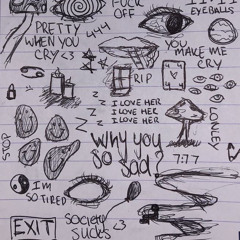 FUCK
OFF
EYEBALLS
PRETTY
WHEN YOU
CRY <3
444
YOU
MAKE ME
CRY
RIP
I LOVE HER
I LOVE HER
I LOVE HER
LONELY
STOP
why you
so sad
7:77
I'M
SO TIRED
EXIT
society
sucks <3